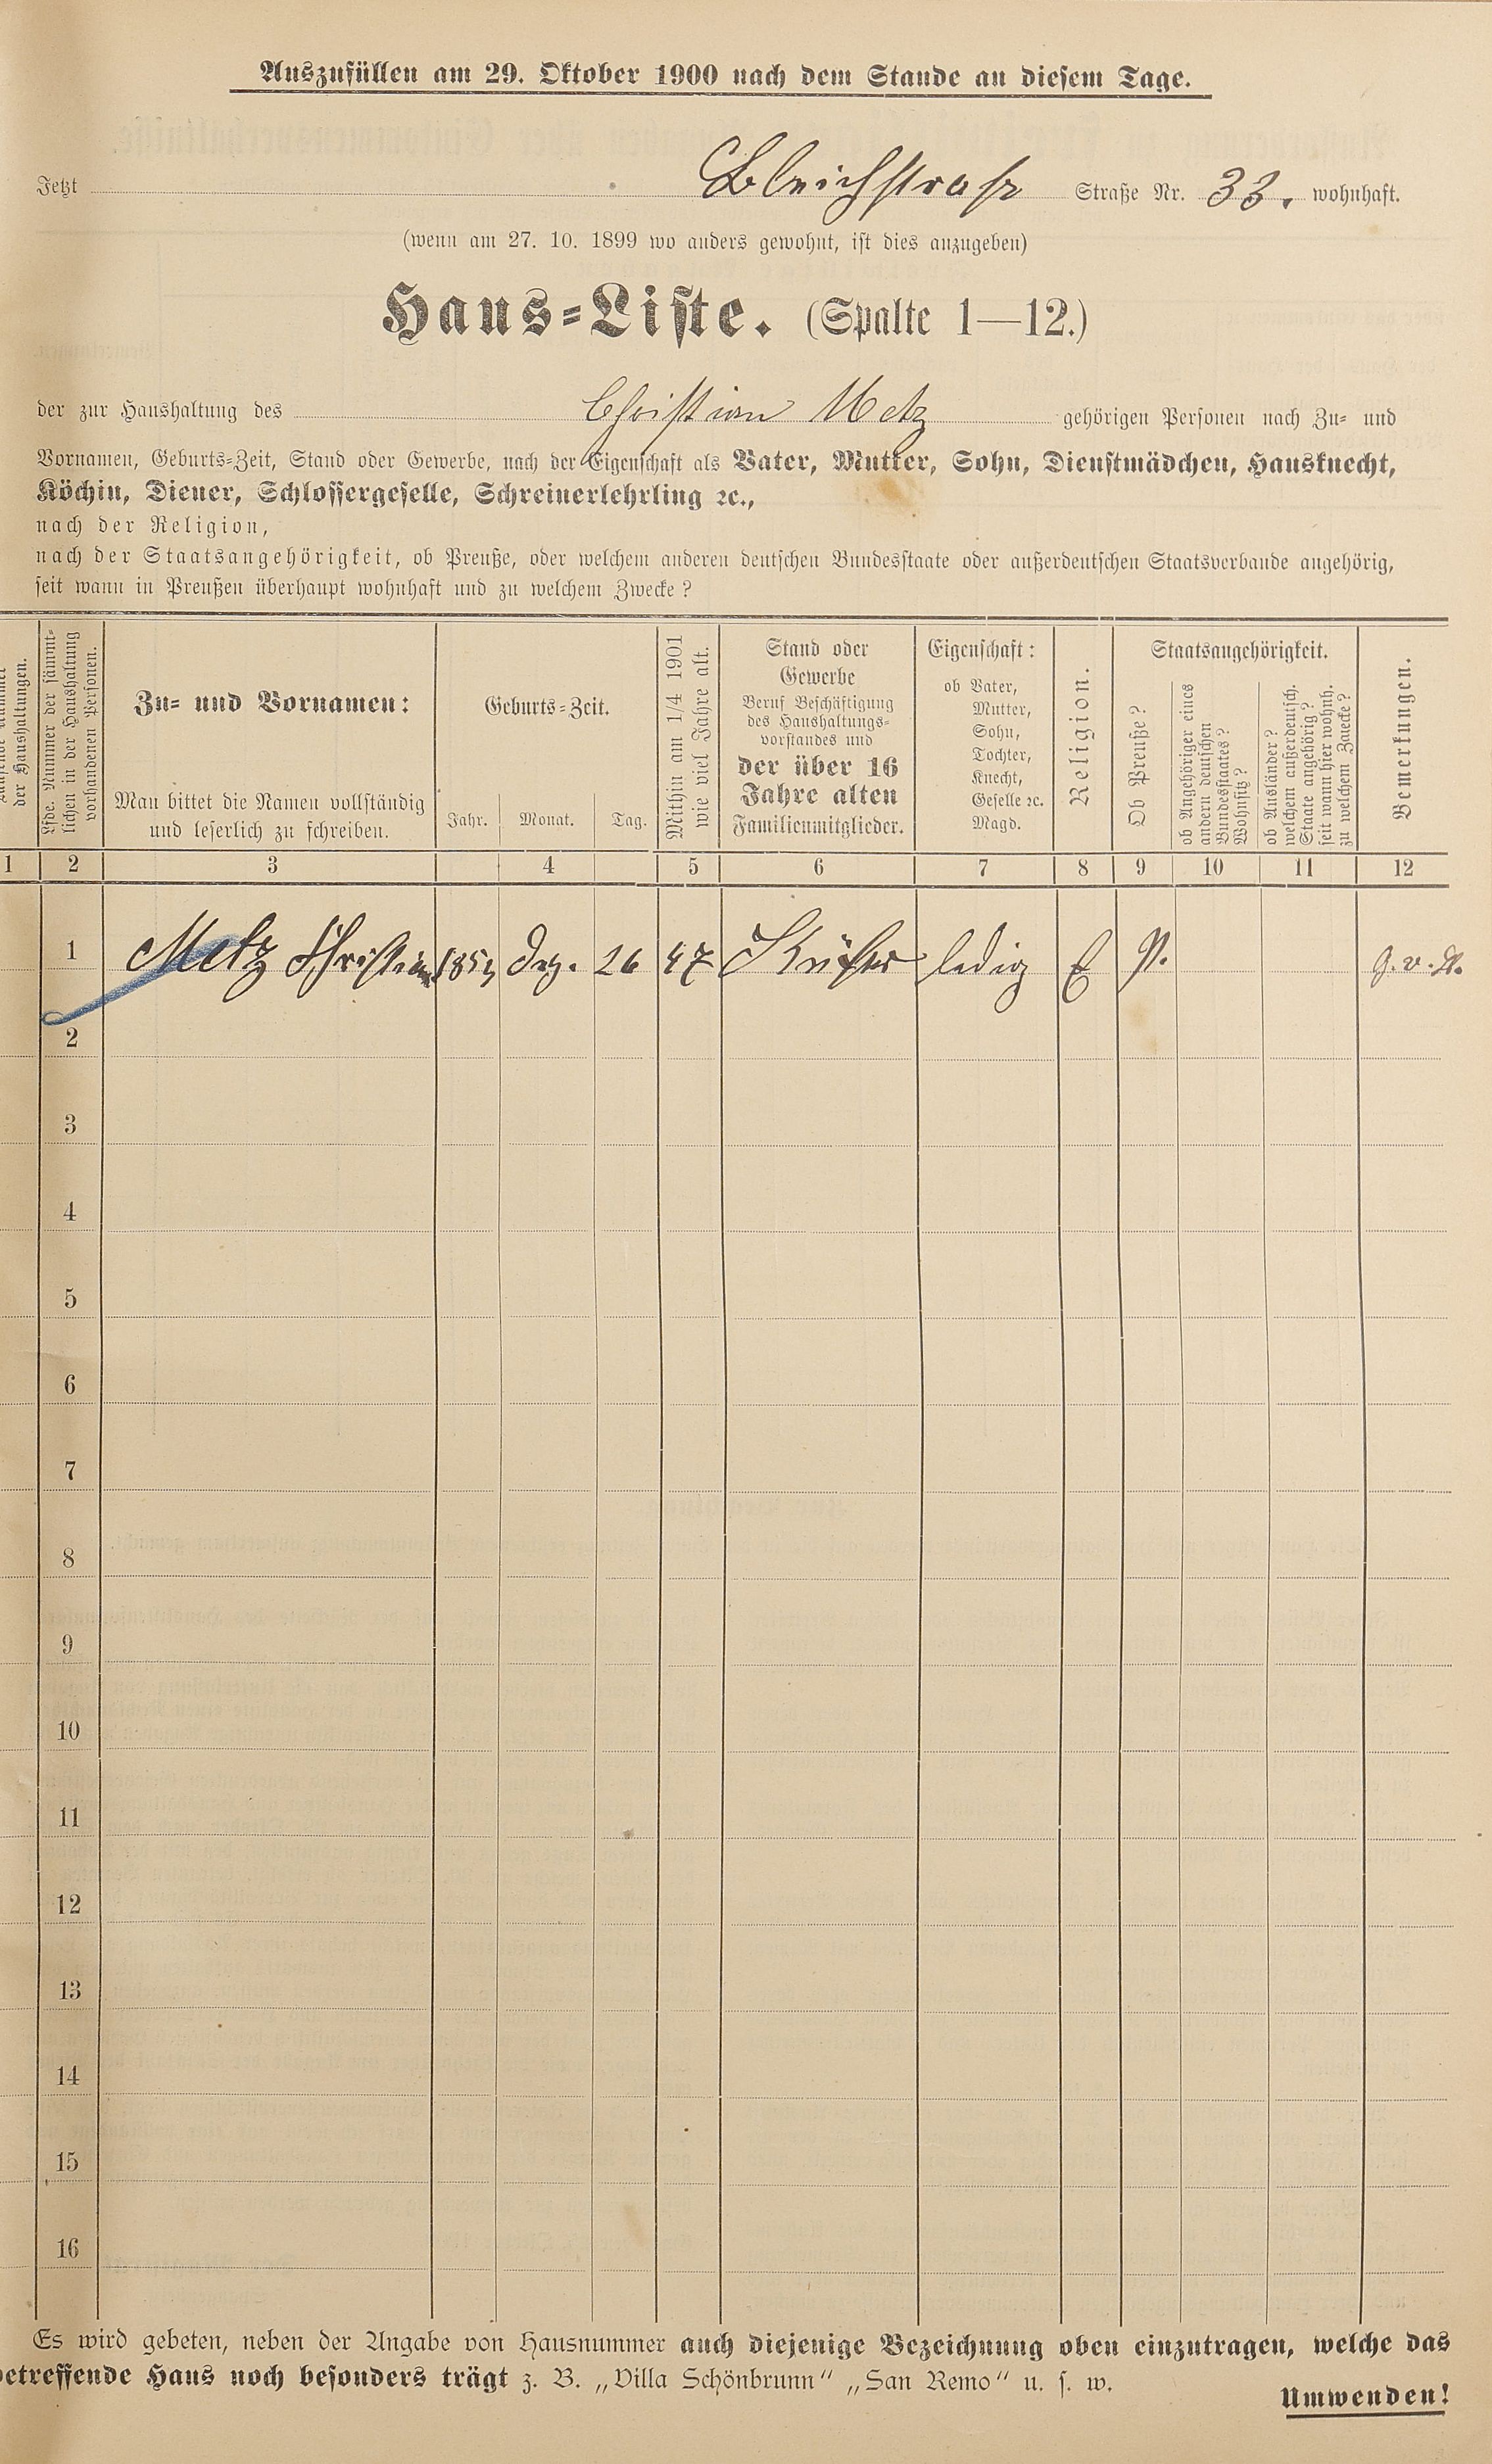 Auszufüllen am 29. Oktober 1900 nach dem Stande an diesem Tage.
Jetzt Bleichstraße Straße Nr. 33. wohnhaft.
(wenn am 27. 10. 1899 wo anders gewohnt, ist dies anzugeben)
Haus-Liste. (Spalte 1—12.)
der zur Haushaltung des Christian Metz gehörigen Personen nach Zu- und
Vornamen, Geburts-Zeit, Stand oder Gewerbe, nach der Eigenschaft als Vater, Mutter, Sohn, Dienstmädchen, Hausknecht,
Köchin, Diener, Schlossergeselle, Schreinerlehrling ꝛc.,
nach der Religion,
nach der Staatsangehörigkeit, ob Preuße, oder welchem anderen deutschen Bundesstaate oder außerdeutschen Staatsverbande angehörig,
seit wann in Preußen überhaupt wohnhaft und zu welchem Zwecke?
der Haushaltungen.
Lfde. Nummer der sämmt-
lichen in der Haushaltung
vorhandenen Personen.
Zu- und Vornamen:
Man bittet die Namen vollständig
und leserlich zu schreiben.
Geburts-Zeit.
Jahr. Monat. Tag.
Mithin am 1/4 1901
wie viel Jahre alt.
Stand oder
Gewerbe
Beruf Beschäftigung
des Haushaltungs-
vorstandes und
der über 16
Jahre alten
Familienmitglieder.
Eigenschaft:
ob Vater,
Mutter,
Sohn,
Tochter,
Knecht,
Geselle ꝛc.
Magd.
Religion.
Staatsangehörigkeit.
Ob Preuße?
ob Angehöriger eines
andern deutschen
Bundesstaates?
Wohnsitz?
ob Ausländer?
welchem außerdeutsch.
Staate angehörig?
seit wann hier wohnh.
zu welchem Zwecke?
Bemerkungen.
1 2 3 4 5 6 7 8 9 10 11 12
1 Metz Christian Dez. 26 47 Küfer ledig E P.
2
3
4
5
6
7
8
9
10
11
12
13
14
15
16
Es wird gebeten, neben der Angabe von Hausnummer auch diejenige Bezeichnung oben einzutragen, welche das
betreffende Haus noch besonders trägt z. B. „Villa Schönbrunn" „San Remo" u. s. w.
Umwenden!